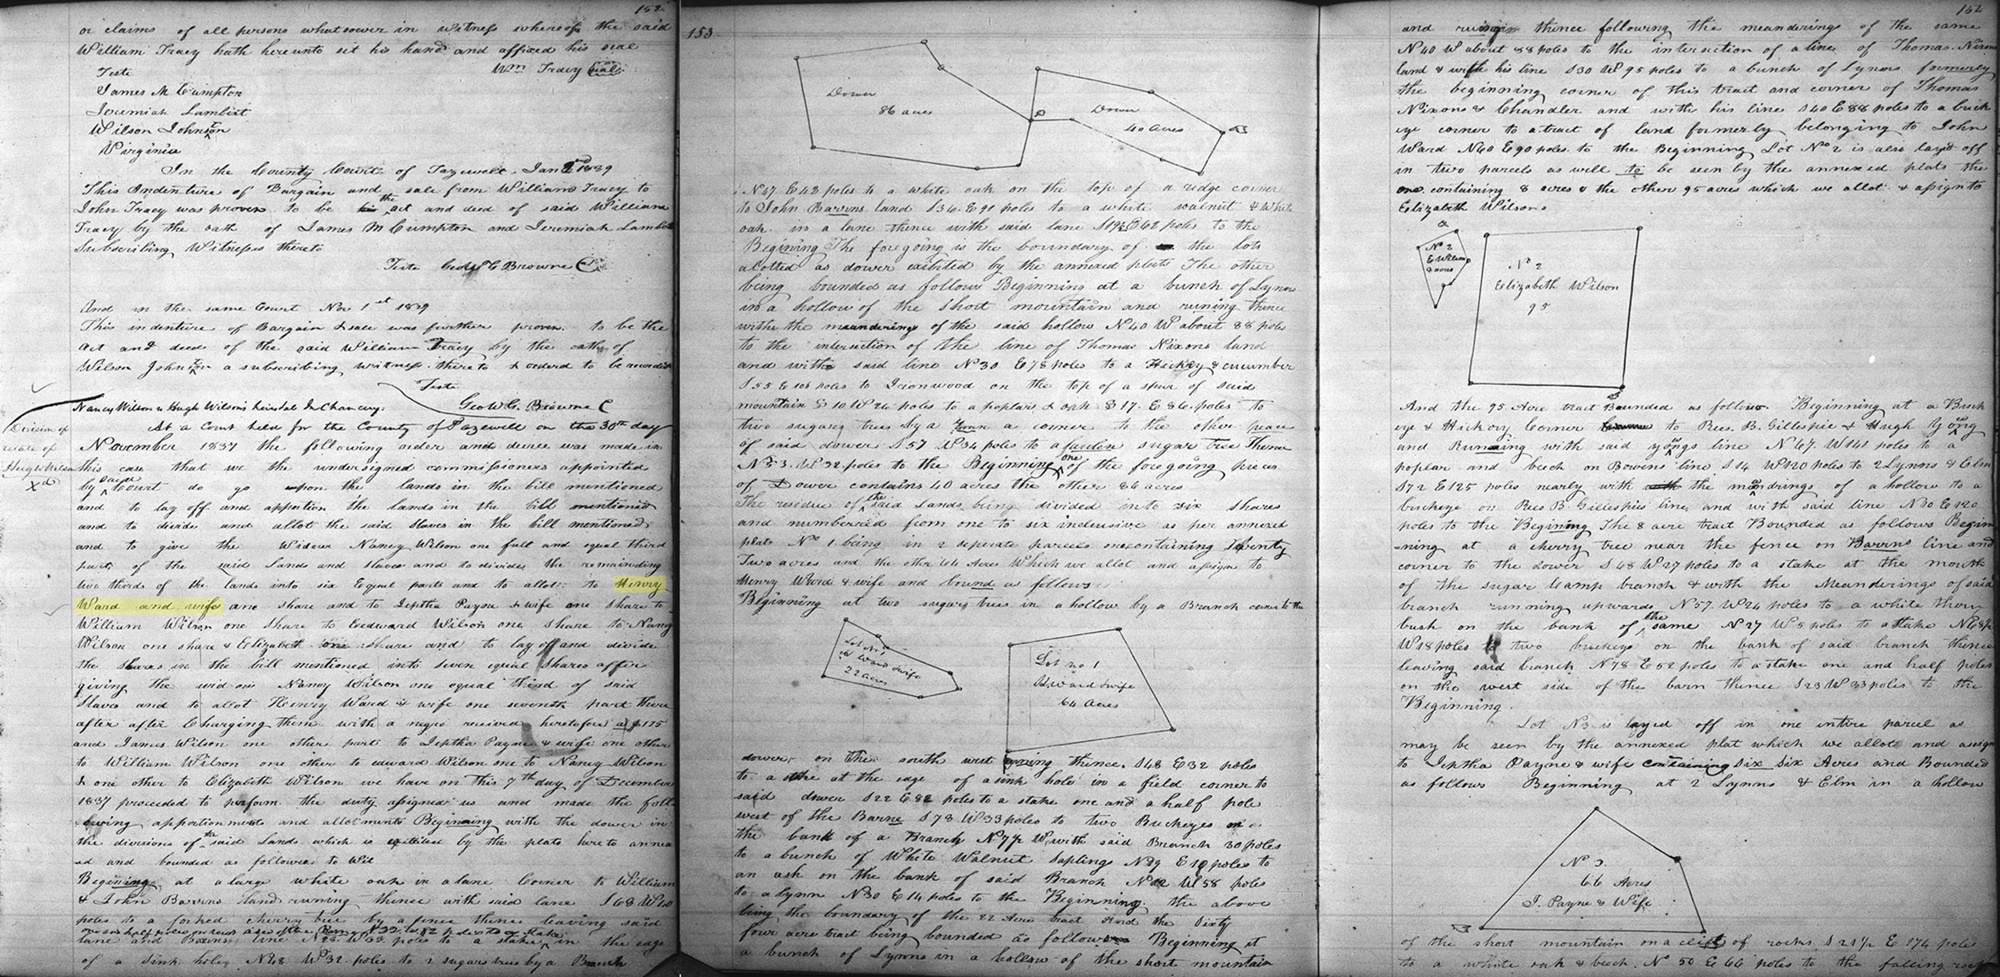 152
or claims of all persons whatsoever in witness whereof the said
William Tracy hath hereunto set his hand and affixed his seal
Wm Tracy seal
Teste
James M Cumpton
Jeremiah Lambert
Wilson Johnston
Virginia
In the County Court of Tazewell Jan 2nd 1839
This Indenture of Bargain and sale from William Tracy to
John Tracy was proven to be the act and deed of said William
Tracy by the oath of James M Cumpton and Jeremiah Lambert
Subscribing Witnesses thereto
Teste Geo W G Browne C
And in the same Court Nov 1st 1839
This indenture of Bargain & sale was further proven to be the
act and deed of the said William Tracy by the oath of
Wilson Johnston a subscribing witness thereto & ordered to be recorded
Teste
Geo W. G. Browne C
Nancy Wilson & Hugh Wilson's heirs In Chancery.
Division of
estate of
Hugh Wilson
Xd
At a Court held for the County of Tazewell on the 30th day
November 1837 the following order and decree was made in
this case that we the undersigned commissioners appointed
by said Court do go upon the lands in the bill mentioned
and to lay off and apportion the lands in the bill mentioned
and to divide and allot the said Slaves in the bill mentioned
and to give the Widow Nancy Wilson one full and equal third
part of the said Lands and Slaves and to divide the remainding
two thirds of the lands into six Equal parts and to allot to Henry
Ward and wife one share and to Jeptha Payne & wife one share to
William Wilson one share to Eedward Wilson one share to Nancy
Wilson one share & Elizabeth one share and to lay off and divide
the slaves in the bill mentioned into seven equal shares after
giving the widow Nancy Wilson one equal third of said
Slaves and to allot Henry Ward & wife one seventh part there
after after Charging them with a negro received heretofore at $175
and James Wilson one other part to Jeptha Payne & wife one other
to William Wilson one other to edward Wilson one to Nancy Wilson
& one other to Elizabeth Wilson we have on this 7th day of December
1837 proceeded to perform the duty assigned us and made the foll
owing apportionments and allotments Beginning with the dower in
the divisions of the said Lands which is exhibited by the plats hereto annex
ed and bounded as follows to Wit
Begining at a large white oak in a lane Corner to William
& John Barnes land runing thence with said lane S68 W40
poles to a forked cherry tree by a fence thence leaving said
lane and Bowens line N23 W33 poles to a stake in the edge
of a sink hole N48 W32 poles to 2 sugar trees by a Branch
153
Dower
86 acres
Dower
40 Acres
N47 E42 poles to a white oak on the top of a ridge corner
to John Barns land S36 E91 poles to a white walnut & White
oak in a lane thence with said lane E62 poles to the
Begining The foregoing is the boundary of the lots
alotted as dower exibited by the annexed plats The other
being bounded as follows Beginning at a bunch of Lynns
in a hollow of the short mountain and runing thence
withe the meanderings of the said hollow N40 W about 88 poles
to the intersection of the line of Thomas Nixons land
and with said line N30 E78 poles to a Hickory & cucumber
S55 E106 poles to Ironwood on the top of a spur of said
mountain S10 W26 poles to a poplar & oak S17 E86 poles to
two sugar trees by a a corner to the other peace
of said dower S57 W34 poles to a sugar tree Thence
N83 W32 poles to the Beginning one of the foregoing pieces
of Dower contains 40 acres the other 86 acres
The residue of the said Lands being divided into six shares
and numberred from one to six inclusive as per annexed
plats No 1 being in 2 seperate parcels one containing Twenty
Two acres and the other 64 Acres Which we allot and assign to
Henry Ward & wife and bound as follows
Beginning at two sugar trees in a hollow by a Branch corner to the
Lot No 1
H Ward & wife
22 Acres
Lot no 1
H Ward & wife
64 Acres
dower on the south west thence S48 E32 poles
to a stake at the edge of a sink hole in a field corner to
said dower S22 E82 poles to a stake one and a half pole
west of the Barne S78 W33 poles to two Buckeyes on
the bank of a Branch N7½ W with said Branch 30 poles
to a bunch of White Walnut saplings N29 E10 poles to
an ash on the bank of said Branch N W58 poles
to a lynn N30 E14 poles to the Beginning the above
being the boundary of the 22 Acre tract And the Sixty
four acre tract being bounded as follows Beginning at
a bunch of Lynns in a hollow of the short mountain
152
and runing thence following the meanderings of the same
N40 W about 88 poles to the intersection of a line of Thomas Nixons
land & with his line S30 W95 poles to a bunch of Lynns formerly
the beginning corner of this tract and corner of Thomas
Nixons & Chandler and with his line S40 E88 poles to a buck
eye corner to a tract of land formerly belonging to John
Ward N60 E90 poles to the Beginning Lot No 2 is also layd off
in two parcels as will to be seen by the annexed plats the
one containing 8 acres & the other 95 acres which we allot & assign to
Eelizabeth Wilson
No 2
E Wilson
8 acres
No 2
Eelizabeth Wilson
95
And the 95 Acre tract Bounded as follows Beginning at a Buck
eye & Hickory Corner to Rees B. Gillespie & Hugh Yong
and Running with said yongs line N67 W141 poles to a
poplar and beech on Bowens line S14 W120 poles to 2 Lynns & Elm
S72 E125 poles nearly with the meandrings of a hollow to a
buckeye on Rees B. Gillespies line and with said line N30 E120
poles to the Begining The 8 acre tract Bounded as follows Begin
ning at a cherry tree near the fence on Barns line and
corner to the dower S48 W27 poles to a stake at the mouth
of the sugar Camp branch & with the Meanderings of said
branch running upwards N57 W24 poles to a white thorn
bush on the bank of the same N27 W5 poles to a stake
W18 poles to two buckeyes on the bank of said branch thence
leaving said branch N78 E52 poles to a stake one and half poles
on the west side of the barn thence S23 W33 poles to the
Beginning.
Lot N3 is layed off in one entire parcel as
may be seen by the annexed plat which we allot and assign
to Jeptha Payne & wife containing six six Acres and Bounded
as follows Beginning at 2 Lynns & Elm in a hollow
No 3
66 Acres
J. Payne & Wife
of the short mountain on a clift of rocks S21½ E174 poles
to a white oak & beech N50 E66 poles to the falling rock